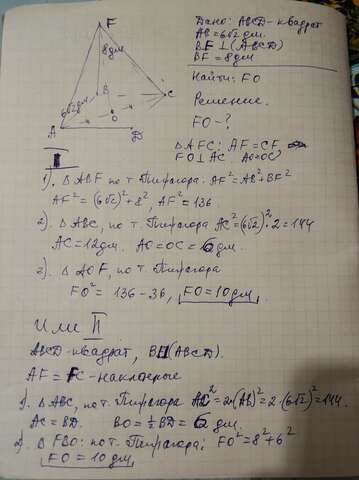 F
8 дм
6√2 дм
B
C
O
A
D
Дано: ABCD - квадрат
AB = 6√2 дм.
BF ⊥ (ABCD)
BF = 8 дм
Найти: FO
Решение.
FO - ?
△AFC: AF = CF
FO ⊥ AC AO = OC
I
1). △ABF по т. Пифагора. AF² = AB² + BF²
AF² = (6√2)² + 8², AF² = 136
2). △ABC, по т. Пифагора AC² = (6√2)² · 2 = 144
AC = 12 дм. AO = OC = 6 дм.
3). △AOF, по т. Пифагора
FO² = 136 - 36, FO = 10 дм
Или II
ABCD - квадрат, (ABCD).
AF = FC - наклонные
1) △ABC, по т. Пифагора AC² = 2·(AB)² = 2·(6√2)² = 144.
AC = BD. BO = ½ BD = 6 дм.
2). △FBO: по т. Пифагора; FO² = 8² + 6²
FO = 10 дм